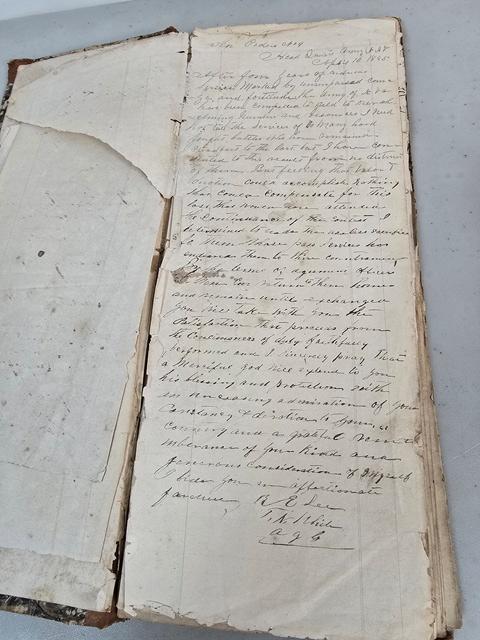 Head Quars Army N. Va
April 10 1865
After four years of arduous
service marked by unsurpassed cour
age and fortitude the army of N. Va
has been compelled to yield to overwh
elming numbers and resources I need
not tell the survivors of so many hard
fought battles who have remained
steadfast to the last but I have con
sented to this result from no distrust
of them But feeling that valor &
devotion could accomplish nothing
that could compensate for this
loss that
the continuance of the contest I
determined to
to them whose past services has
endeared them to their countrymen
By the terms of agreement officers
& men can return to their homes
and remain until exchanged
you will take with you the
Satisfaction that proceeds from
the Consciousness of duty faithfully
performed and I sincerely pray that
a Merciful God will extend to you
his blessing and protection with
an unceasing admiration of your
Constancy & devotion to your
Country and a grateful
of your kind and
generous Consideration of Myself
I bid you an affectionate
farewell R E Lee